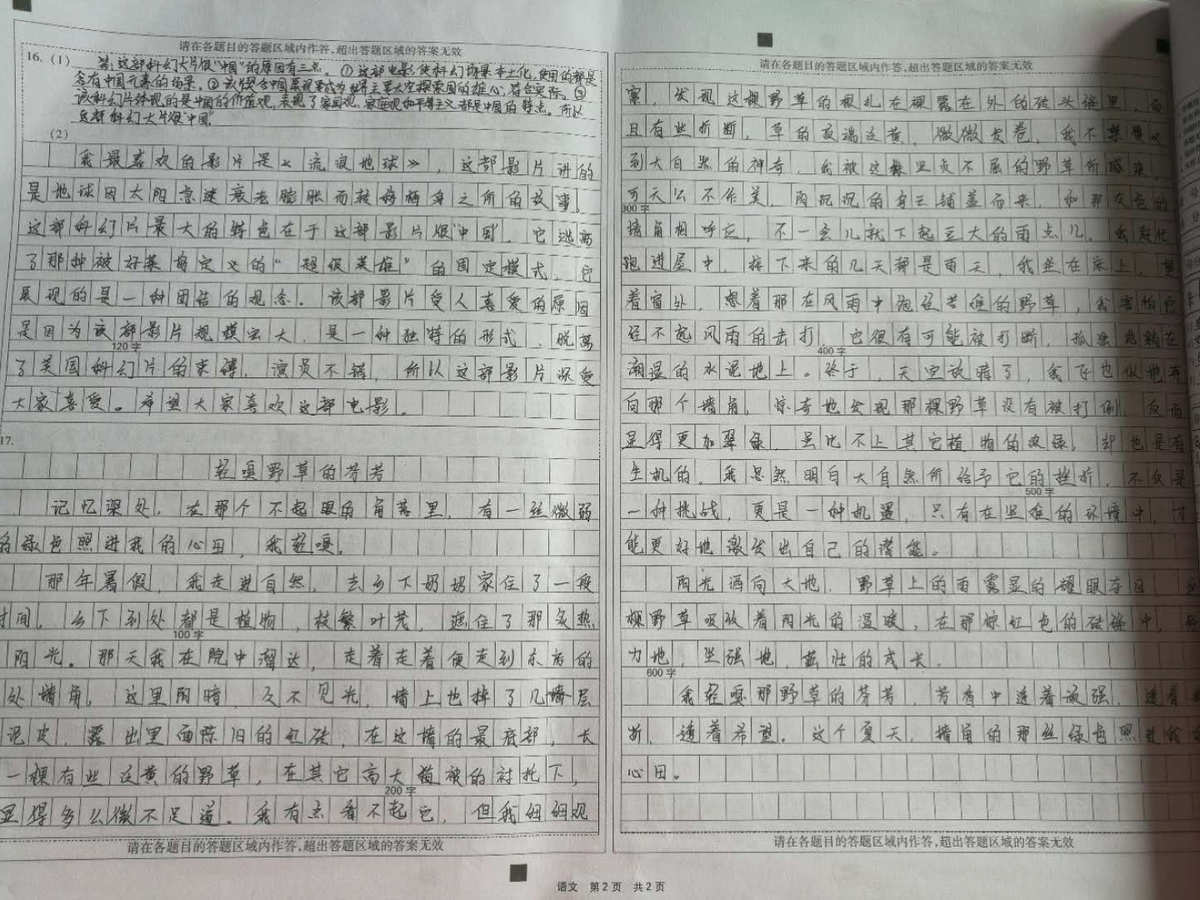 请在各题目的答题区域内作答,超出答题区域的答案无效
16. (1) 答:这部科幻大片很“中国”的原因有三点。①这部电影使科幻场景本土化,使用的都是
含有中国元素的场景。②该片契合中国崛起成为世界主要太空探索国的雄心,符合实际。③
该科幻片体现的是中国的价值观,表现了家国观,家庭观和平等主义都是中国的特点。所以
这部科幻大片很“中国”
(2)
我最喜欢的影片是《流浪地球》,这部影片讲的
是地球因太阳急速衰老膨胀而转移栖身之所的故事。
这部科幻片最大的特色在于这部影片很“中国”,它逃离
了那种被好莱坞定义的“超级英雄”的固定模式,它
展现的是一种团结的观念。该部影片受人喜爱的原因
是因为该部影片规模宏大,是一种独特的形式,脱离
120字
了美国科幻片的束缚,演员不错,所以这部影片深受
大家喜爱。希望大家喜欢这部电影。
17.
轻嗅野草的芳芳
记忆深处,在那个不起眼的角落里,有一丝微弱
的绿色照进我的心田,我轻嗅。
那年暑假,我走进自然,去乡下奶奶家住了一段
时间。乡下到处都是植物,枝繁叶茂,遮住了那炙热
100字
阳光。那天我在院中溜达,走着走着便走到东方的
处墙角。这里阴暗,久不见光,墙上也掉了几层
泥皮,露出里面陈旧的红砖,在这墙的最底部,长
一棵有些泛黄的野草,在其它高大植被的衬托下,
200字
显得多么微不足道。我有点看不起它,但我细细观
请在各题目的答题区域内作答,超出答题区域的答案无效
请在各题目的答题区域内作答,超出答题区域的答案无效
察,发现这棵野草的根扎在裸露在外的砖头缝里,而
且有些折断,草的顶端泛黄,微微发卷,我不禁
到大自然的神奇,我被这棵坚贞不屈的野草所感染。
可天公不作美,阴沉沉的乌云铺盖而来,和那灰色的
300字
墙角相呼应,不一会儿就下起豆大的雨点儿,我赶忙
跑进屋中,接下来的几天都是雨天,我坐在床上,望
着窗外,想着那在风雨中饱经苦难的野草,我害怕它
经不起风雨的击打,它很有可能被打断,孤零零躺在
400字
潮湿的水泥地上。终于,天空放晴了,我飞也似地奔
向那个墙角,惊奇地发现那棵野草没有被打倒,反而
显得更加翠绿,虽比不上其它植物的浓绿,却也是有
生机的。我忽然明白大自然所给予它的挫折,不仅是
500字
一种挑战,更是一种机遇,只有在坚难的环境中,才
能更好地激发出自己的潜能。
阳光洒向大地,野草上的雨露显的耀眼夺目,
棵野草吸收着阳光的温暖,在那惊红色的砖缝中,
力地,坚强地,茁壮的成长。
600字
我轻嗅那野草的芳芳,芳香中透着顽强,透着
断,透着希望。这个夏天,墙角的那丝绿色照进我的
心田。
请在各题目的答题区域内作答,超出答题区域的答案无效
语文 第2页 共2页